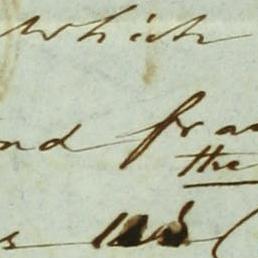 which
nd fra
the
s